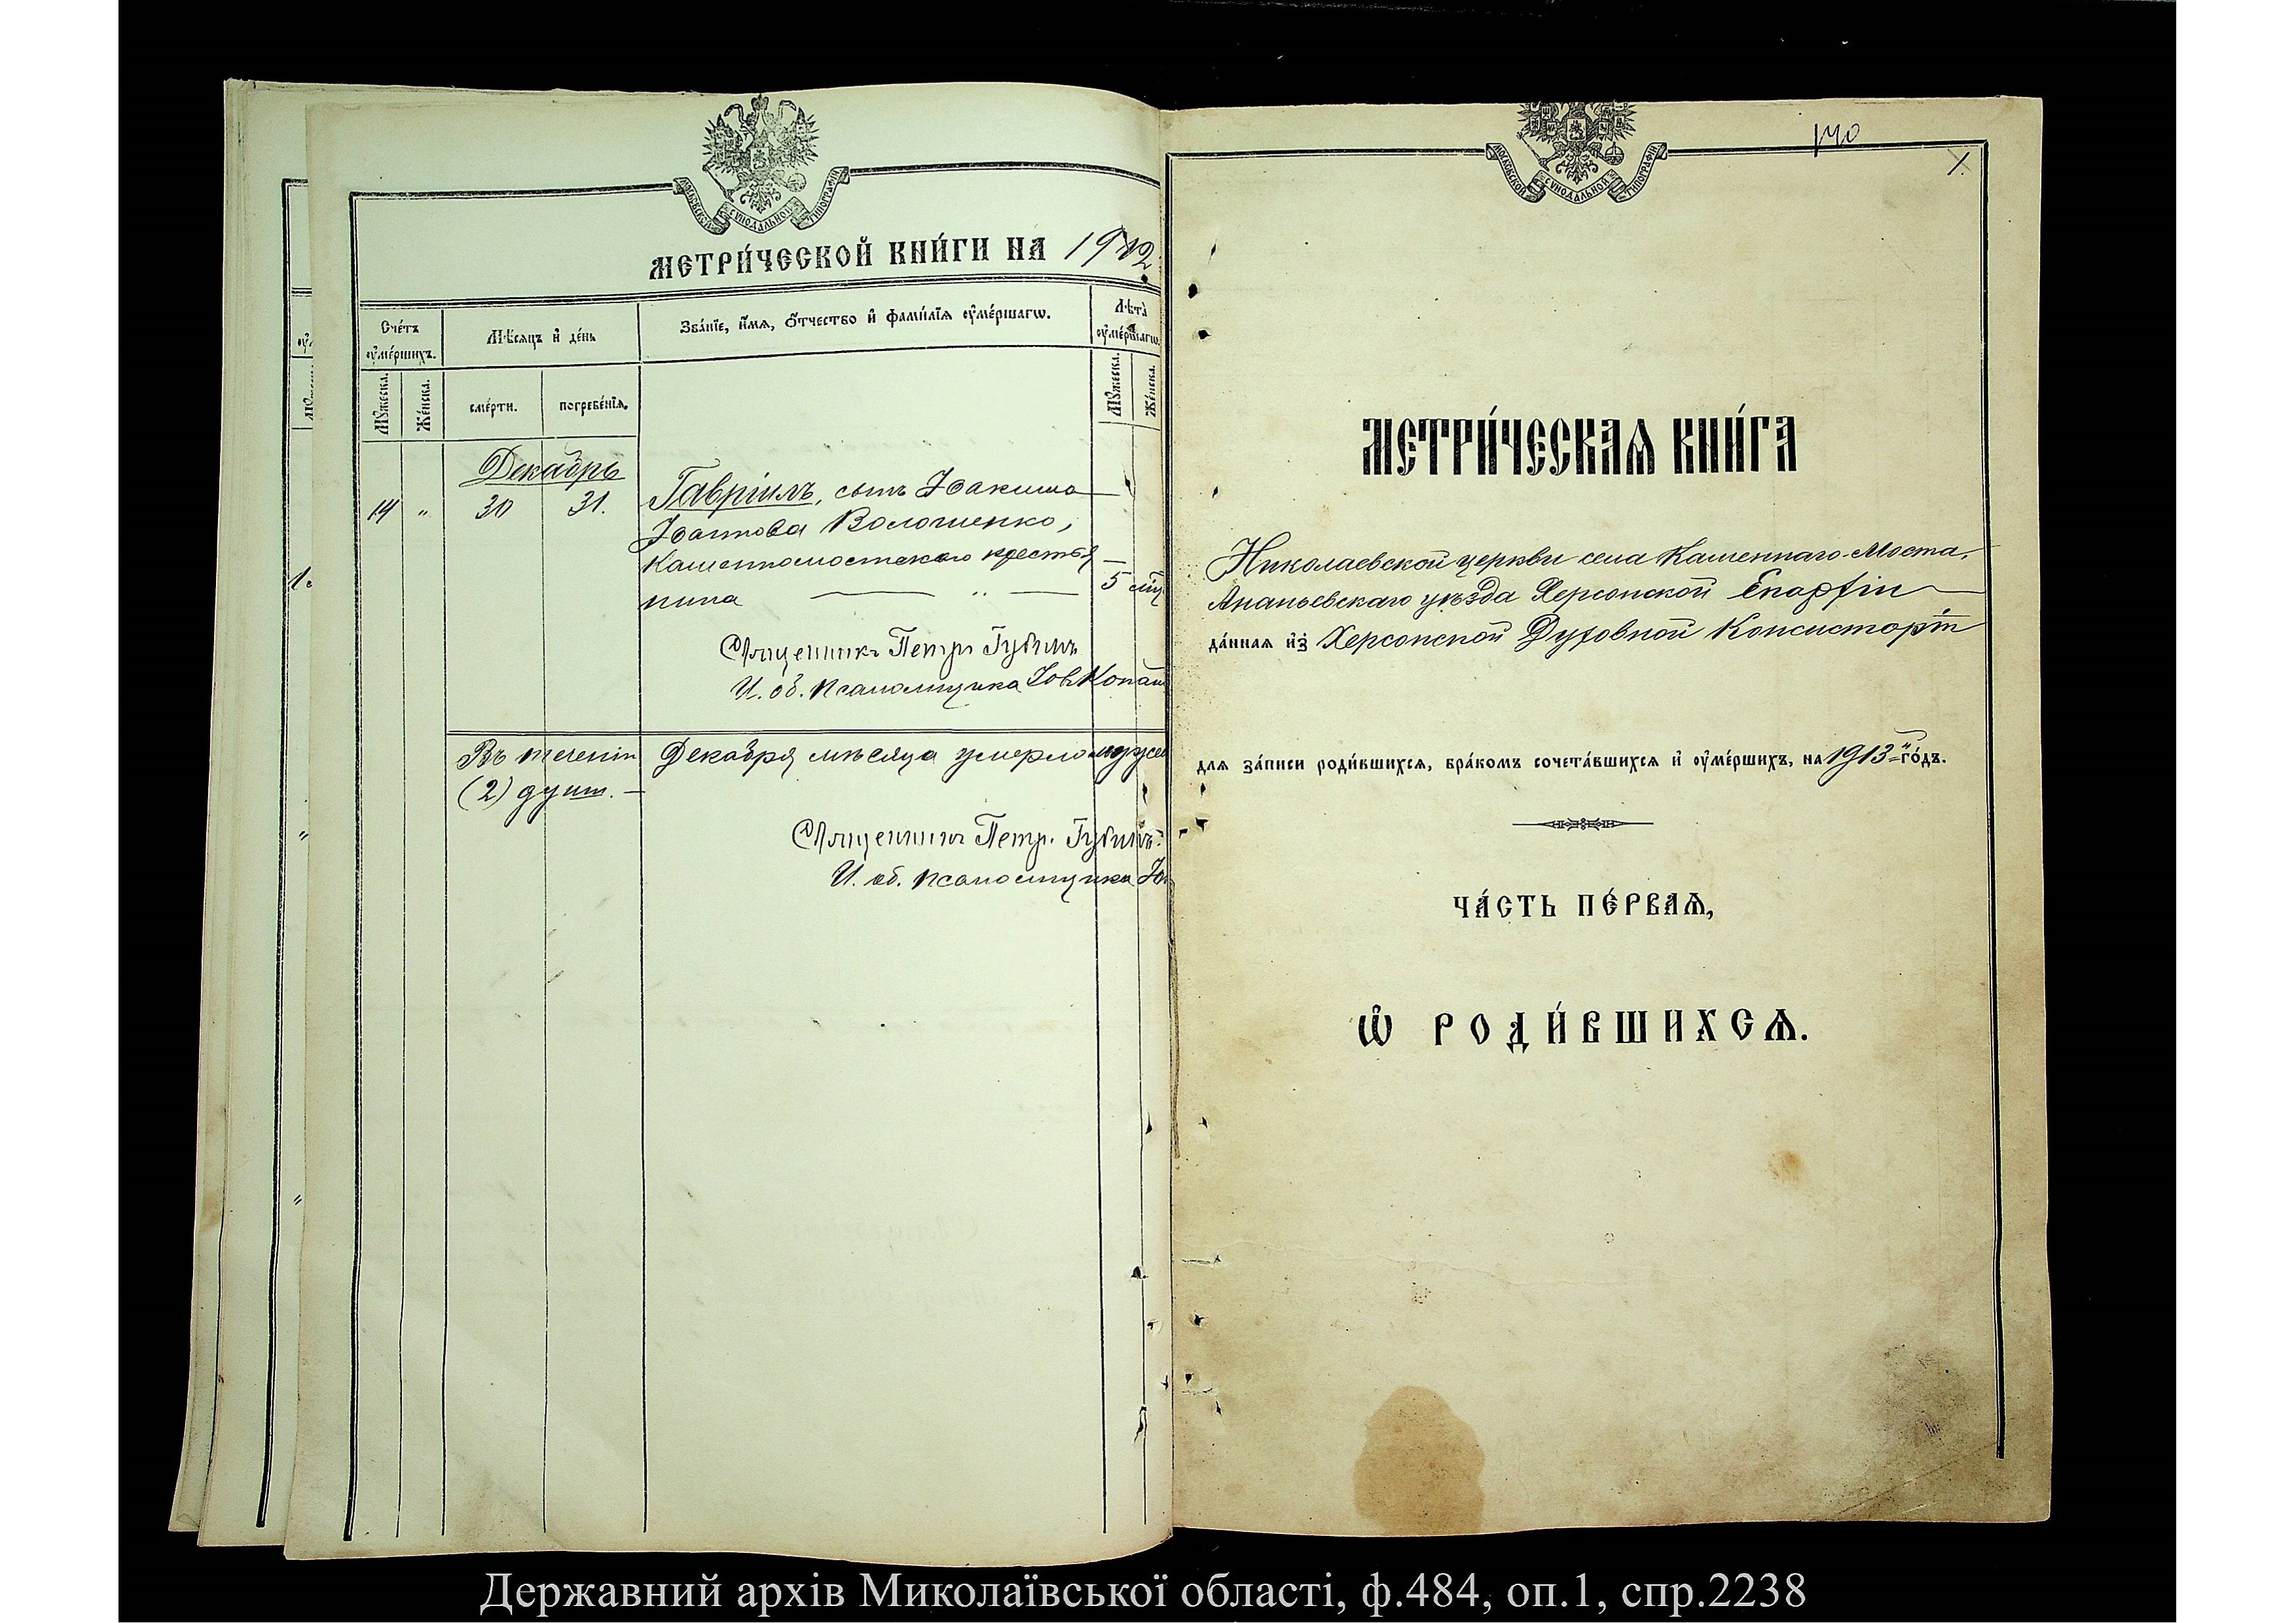 МОСКОВСКОЙ СѴНОДАЛЬНОЙ ТИПОГРАФІИ
МЕТРИ́ЧЕСКОЙ КНИ́ГИ НА 1912
Сче́тъ ᲂу҆ме́ршихъ.
Мѣ́сяцъ и҆ де́нь
Зва́нїе, и҆́мѧ, ѻ҆́тчество и҆ фами́лїѧ ᲂу҆ме́ршагѡ.
Лѣ́та ᲂу҆ме́ршагѡ.
Мꙋ́жеска.
Же́нска.
сме́рти.
погребе́нїѧ.
Мꙋ́жеска.
Же́нска.
Декабрь
14 " 30 31. Гавріилъ, сынъ Іоакима
Іоаннова Волошенко,
Каменномостскаго крестья
нина — " — 5 мѣ
Священникъ Петръ Губинъ
И. об. псаломщика Іов Копа
Въ теченіи Декабря мѣсяца умерло мужес
(2) душ. —
Священникъ Петръ Губинъ.
И. об. псаломщика Іо
140
1.
МОСКОВСКОЙ СѴНОДАЛЬНОЙ ТИПОГРАФІИ
МЕТРИ́ЧЕСКАѦ КНИ́ГА
Николаевской церкви села Каменнаго-Моста,
Ананьевскаго уѣзда Херсонской Епархіи
да́ннаѧ и҆з̾ Херсонской Духовной Консисторіи
длѧ за́писи роди́вшихсѧ, бра́комъ сочета́вшихсѧ и҆ ᲂу҆ме́ршихъ, на 1913-й го́дъ.
ЧА́СТЬ ПЕ́РВАѦ,
Ѡ҆ РОДИ́ВШИХСѦ.
Державний архів Миколаївської області, ф.484, оп.1, спр.2238